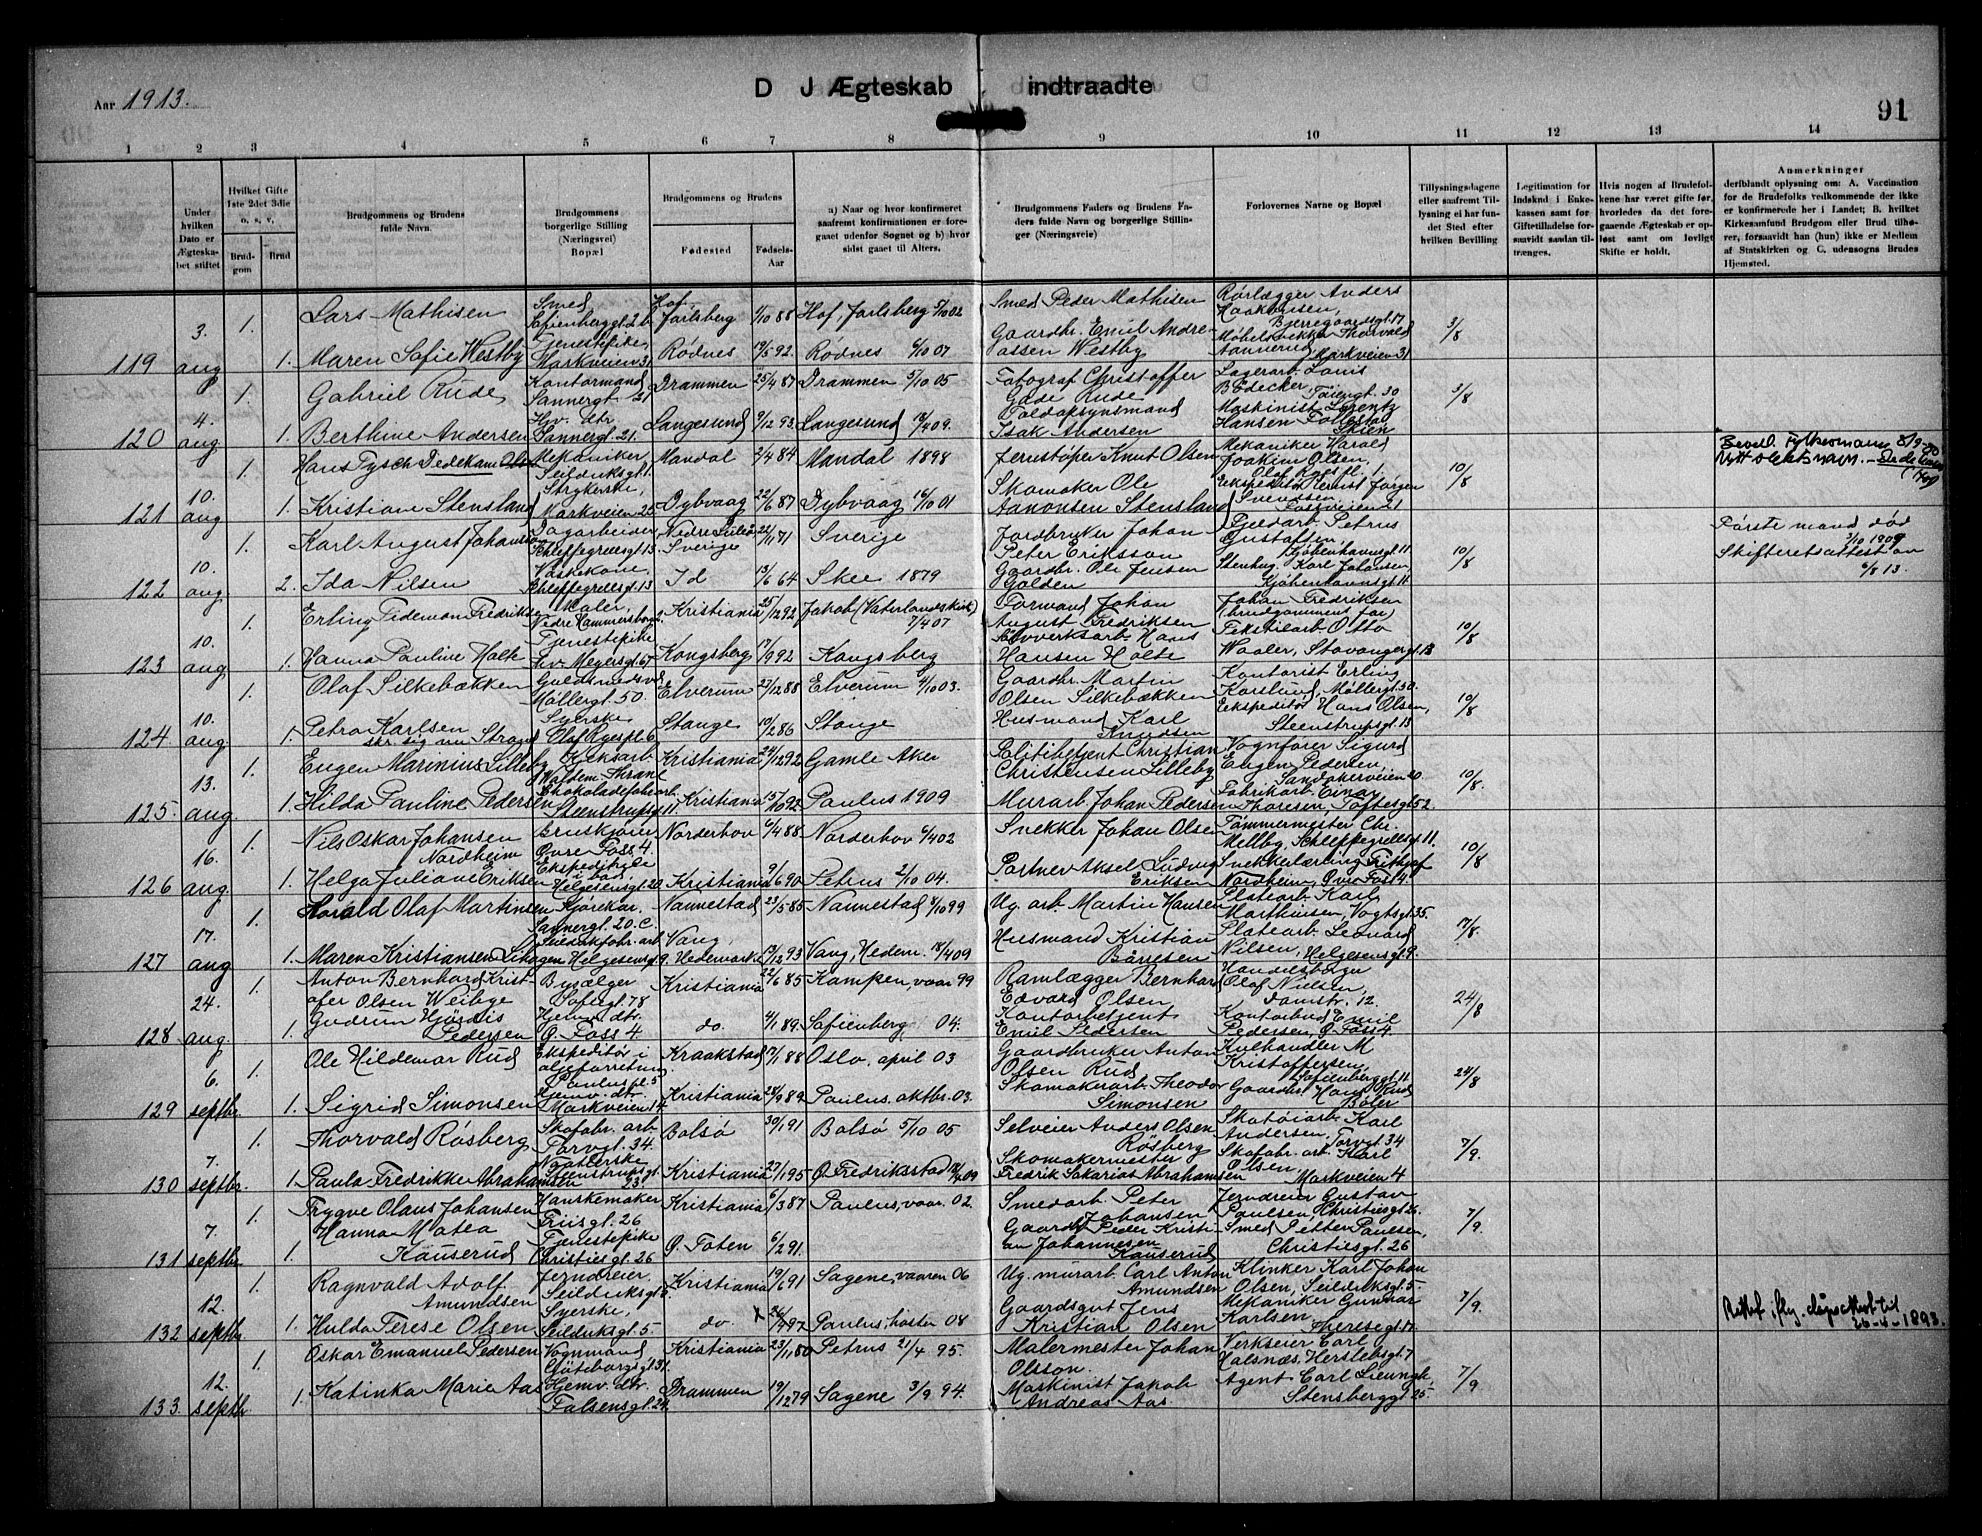 Aar 1913.
D J Ægteskab indtraadte
91
1 2 3 4 5 6 7 8 9 10 11 12 13 14
Under hvilken Dato er Ægteskabet stiftet
Hvilket Gifte 1ste 2det 3die o. s. v.
Brudgom
Brud
Brudgommens og Brudens fulde Navn.
Brudgommens borgerlige Stilling (Næringsvei) Bopæl
Brudgommens og Brudens
Fødested
Fødsels-Aar
a) Naar og hvor konfirmeret saafremt konfirmationen er foregaaet udenfor Sognet og b) hvor sidst gaaet til Alters.
Brudgommens Faders og Brudens Faders fulde Navn og borgerlige Stillinger (Næringsveie)
Forlovernes Navne og Bopæl
Tillysningsdagene eller saafremt Tillysning ei har fundet Sted efter hvilken Bevilling
Legitimation for Indskud i Enkekassen samt for Giftetilladelse forsaavidt saadan tiltrænges.
Hvis nogen af Brudefolkene har været gifte før, hvorledes da det foregaaende Ægteskab er opløst samt om lovligt Skifte er holdt.
Anmerkninger derlblandt oplysning om: A. Vaccination for de Brudefolks vedkommende der ikke er konfirmerede her i Landet; B. hvilket Kirkesamfund Brudgom eller Brud tilhører, forsaavidt han (hun) ikke er Medlem af Statskirken og C. udensogns Brudes Hjemsted.
119 3. aug 1. Lars Mathisen Smed Sofienberggt. 2 b Hof Jarlsberg 1/10 88 Hof, Jarlsberg 5/10 02 Smed Peder Mathisen Rørlægger Anders Haakonsen, Bjerregaardsgt. 17 3/8
1. Maren Sofie Westby Tjenestepike, Markveien 31 Rødnes 19/5 92. Rødnes 6/10 07 Gaardbr. Emil Andreassen Westby Møbelsnekker Thorvald Markveien 31
120 4. aug 1. Gabriel Rude Kontormand Sannergt. 21 Drammen 25/4 87 Drammen 5/10 05 Fotograf Christoffer Gade Rude Lagerarb. Louis Bödecker, Tøiengt. 30 3/8
1. Berthine Andersen Hv. dtr. Sannergt. 21. Langesund 9/12 93. Langesund 18/4 09. Toldopsynsmand Isak Andersen Maskinist Lorentz Hansen Skien
121 10. aug 1. Hans Tysch Dedekam Olsen Mekaniker, Seilduksgt. 1. Mandal 2/4 84 Mandal 1898 Jernstøper Knut Olsen Mekaniker Harald Joakim Olsen, Olaf Ryes pl. 1 10/8
1. Kristiane Stensland Strykerske, Markveien 25 Dybvaag 22/6 87 Dybvaag 16/10 01 Skomaker Ole Aanonsen Stensland Svendsen
122 10. aug 1. Karl August Johansson Dagarbeider Schleppegrellsgt. 13. Sverige 22/11 71 Sverige Jordbruker Johan Peter Eriksson Petrus Gustafsen, Kjøbenhavnsgt. 11 10/8 Første mand død 3/10 1909 Skifteretsattest av 6/8 13.
2. Ida Nilsen Vaskekone. Schleppegrellsgt. 13 Id 13/6 64 Skee 1879 Gaardbr. Ole Jensen Stenhug. Karl Johansen, Kjøbenhavnsgt. 11
123 10. aug 1. Erling Tidemann Fredriksen Maler, Nedre Hammersborg 2. Kristiania 25/12 92 Jakob (Vaterlandskirk) 7/4 07 Formand Johan August Fredriksen Johan Fredriksen (brudgommens far) 10/8
1. Hanna Pauline Holte Tjenestepike Hv. Meyersgt. 67 Kongsberg 17/9 92 Kongsberg Hans Hansen Holte Tekstilarb. Otto Waaler, Stavangergt. 13
124 10. aug 1. Olaf Silkebækken Guldsmedsv. Møllergt. 50. Elverum 23/12 88 Elverum 4/10 03. Gaardbr. Martin Olsen Silkebækken Kontorist Erling Karlund, Møllergt. 50. 10/8
1. Petra Karlsen skr. sig nu Strand Syerske Olaf Ryes pl. 6 Stange 10/2 86 Stange Husmand Karl Knudsen Ekspeditør Hans Olsen, Steenstrupsgt. 13
125. 13. aug. 1. Eugen Marinius Lilleby Kjeksarb. Waldem. Thranes Kristiania 24/12 92 Gamle Aker Christian Christensen Lilleby Vognfører Sigurd Eugen Pedersen, Sandakerveien 20 10/8
1. Hilda Pauline Pedersen Chokoladefabr.arb. Steenstrupsgt. 11 Kristiania 15/10 92 Paulus 1909 Murarb. Johan Pedersen Fabrikarb. Einar Thoresen, Toftesgt. 52.
126 16. aug. 1. Nils Oskar Johansen Nordheim Bruskjører Øvre Foss 4 Norderhov 6/4 88 Norderhov 6/4 02 Snekker Johan Olsen Tømmermester Chr. Melby, Schleppegrellsgt. 11. 10/8
1. Helga Juliane Eriksen Ekspeditrice i bod, Helgesensgt. 20. Kristiania 9/6 90 Petrus 2/10 04. Portner Aksel Ludvig Eriksen Snekkerlærling Fritjof Nordheim, Øvre Foss 4.
127 17. aug 1. Harald Olaf Martinsen Kjørekar. Sannergt. 20. C. Nannestad 23/5 85 Nannestad 8/10 99 Ug. arb. Martin Hansen Platearb. Karl Marthinsen, Vogtsgt. 35. 17/8.
1. Maren Kristiansen Lihagen Seildukfabr. arb. Helgesensgt. 9. Vang, Hedemarken 13/12 93 Vang, Hedem. 18/4 09 Husmand Kristian Børresen Platearb. Leonard Nilsen, Helgesensgt. 9.
128 24. aug. 1. Anton Bernhard Kristofer Olsen Weiby Bysælger Toftesgt. 78 Kristiania 22/6 85 Kampen, vaar 99 Ramlægger Bernhard Edvard Olsen Handelsborger Olof Nielsen, Damstr. 12. 24/8
1. Gudrun Hjørdis Pedersen Hjemv. dtr. Ø. Foss 4 do. 4/1 89. Sofienberg 04. Kontorbetjent Emil Pedersen Kontorbud Emil Pedersen, Ø. Foss 4.
129 6. septbr. 1. Ole Hildemar Rud Ekspeditør i oljeforretning Pauluspl. 5 Kraakstad 17/1 88 Oslo, april 03 Gaardbruker Anton Olsen Rud Kulhandler M Kristoffersen, Sofienberggt. 11 24/8
1. Sigrid Simonsen Hjemv. dtr. Markveien 14. Kristiania 24/9 89. Paulus, oktbr. 03. Skomakerarb. Theodor Simonsen Gaardbr. Hans Rud Bøler
130 7. septbr. 1. Thorvald Røsberg Skofabr. arb. Torvgt. 34. Bolsø 30/1 91 Bolsø 5/10 05 Selveier Anders Olsen Røsberg Skotøiarb. Karl Andersen, Torvgt. 34 7/9.
1. Paula Fredrikke Abrahamsen Steenstrupsgt. 23 Kristiania 27/1 95 Ø. Fredrikstad 18/4 09 Skomakermester Fredrik Sakarias Abrahamsen Skofabr. arb. Karl Olsen, Markveien 4
131 7. septbr. 1. Trygve Olaus Johansen Hanskemaker Friisgt. 26 Kristiania 6/3 87 Paulus, vaar. 02. Smedarb. Peter Johansen Jerndreier Gustav Paulsen, Christiesgt. 26 7/9.
1. Hanna Matea Kauserud Tjenestepike Christiesgt. 26 Ø. Toten 6/2 91. Gaardbr. Peder Kristian Johannesen Kauserud Smed Petter Paulsen, Christiesgt. 26
132 12. septbr. 1. Ragnvald Adolf Amundsen Jerndreier. Seilduksgt. Kristiania 19/6 91 Sagene, vaaren 06 Ug. murarb. Carl Anton Amundsen Klinker Karl Johan Olsen, Seilduksgt. 5. 7/9.
1. Hulda Terese Olsen Syerske, Seilduksgt. 5 do. x 26/4 97 Paulus, høsten 08 Gaardsgut Jens Kristian Olsen Mekaniker Gunnar Karlsen, Theresegt. 26-4-1893.
133. 12. septbr. 1. Oskar Emanuel Pedersen Vognmand Gøteborgsgt. 31. Kristiania 23/11 80 Petrus 21/4 95. Malermester Johan Olsson. Verkseier Carl Halsnæs, Herslebsgt. 7 7/9
1. Katinka Marie Aas Hjemv. dtr. Falsensgt. 24. Drammen 19/12 79 Sagene 3/9 94. Maskinist Jakob Andreas Aas Agent Carl Lieungh, Stensberggt. 25